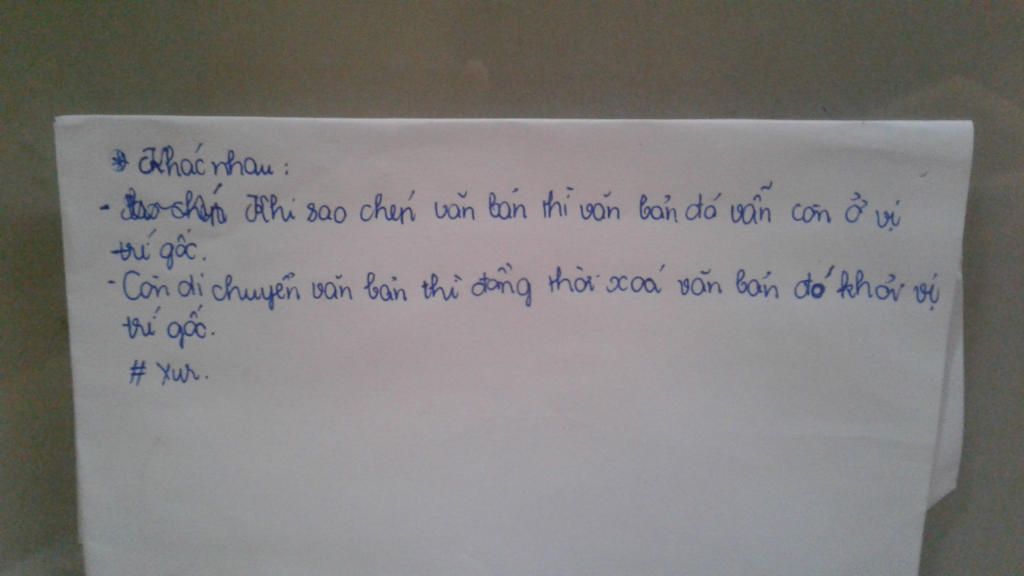 * Khác nhau:
- Khi sao chép văn bản thì văn bản đó vẫn còn ở vị
trí gốc.
- Còn di chuyển văn bản thì đồng thời xoá văn bản đó khỏi vị
trí gốc.
# Xur.